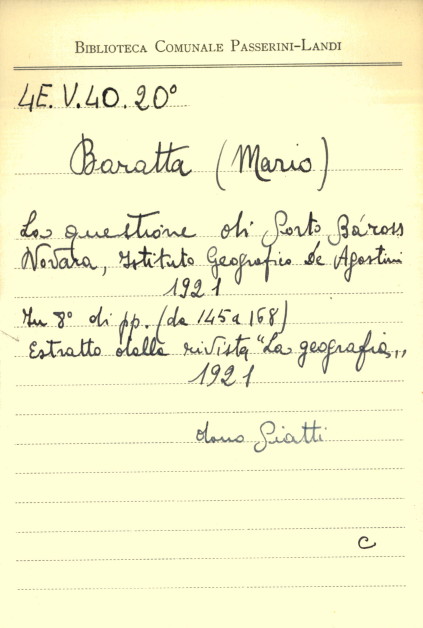 BIBLIOTECA COMUNALE PASSERINI-LANDI
4E.V.40.20°
Baratta (Mario)
La questione di Porto Báross
Novara, Istituto Geografico De Agostini
1921
In 8° di pp. (da 145 a 168)
Estratto dalla rivista "La geografia„
1921
dono Piatti
C